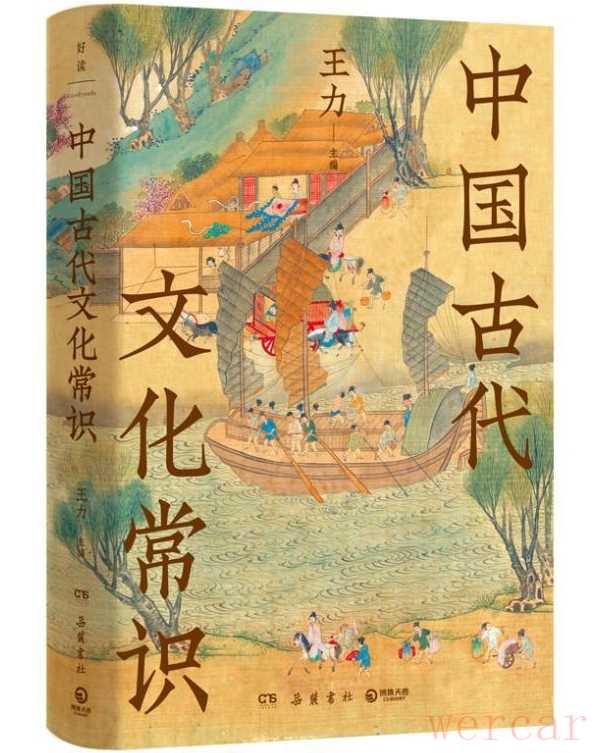 中国古代
文化常识
王力
主编
好读
中国古代文化常识
王力
主编
岳麓书社
岳麓书社
博集天卷
wercar